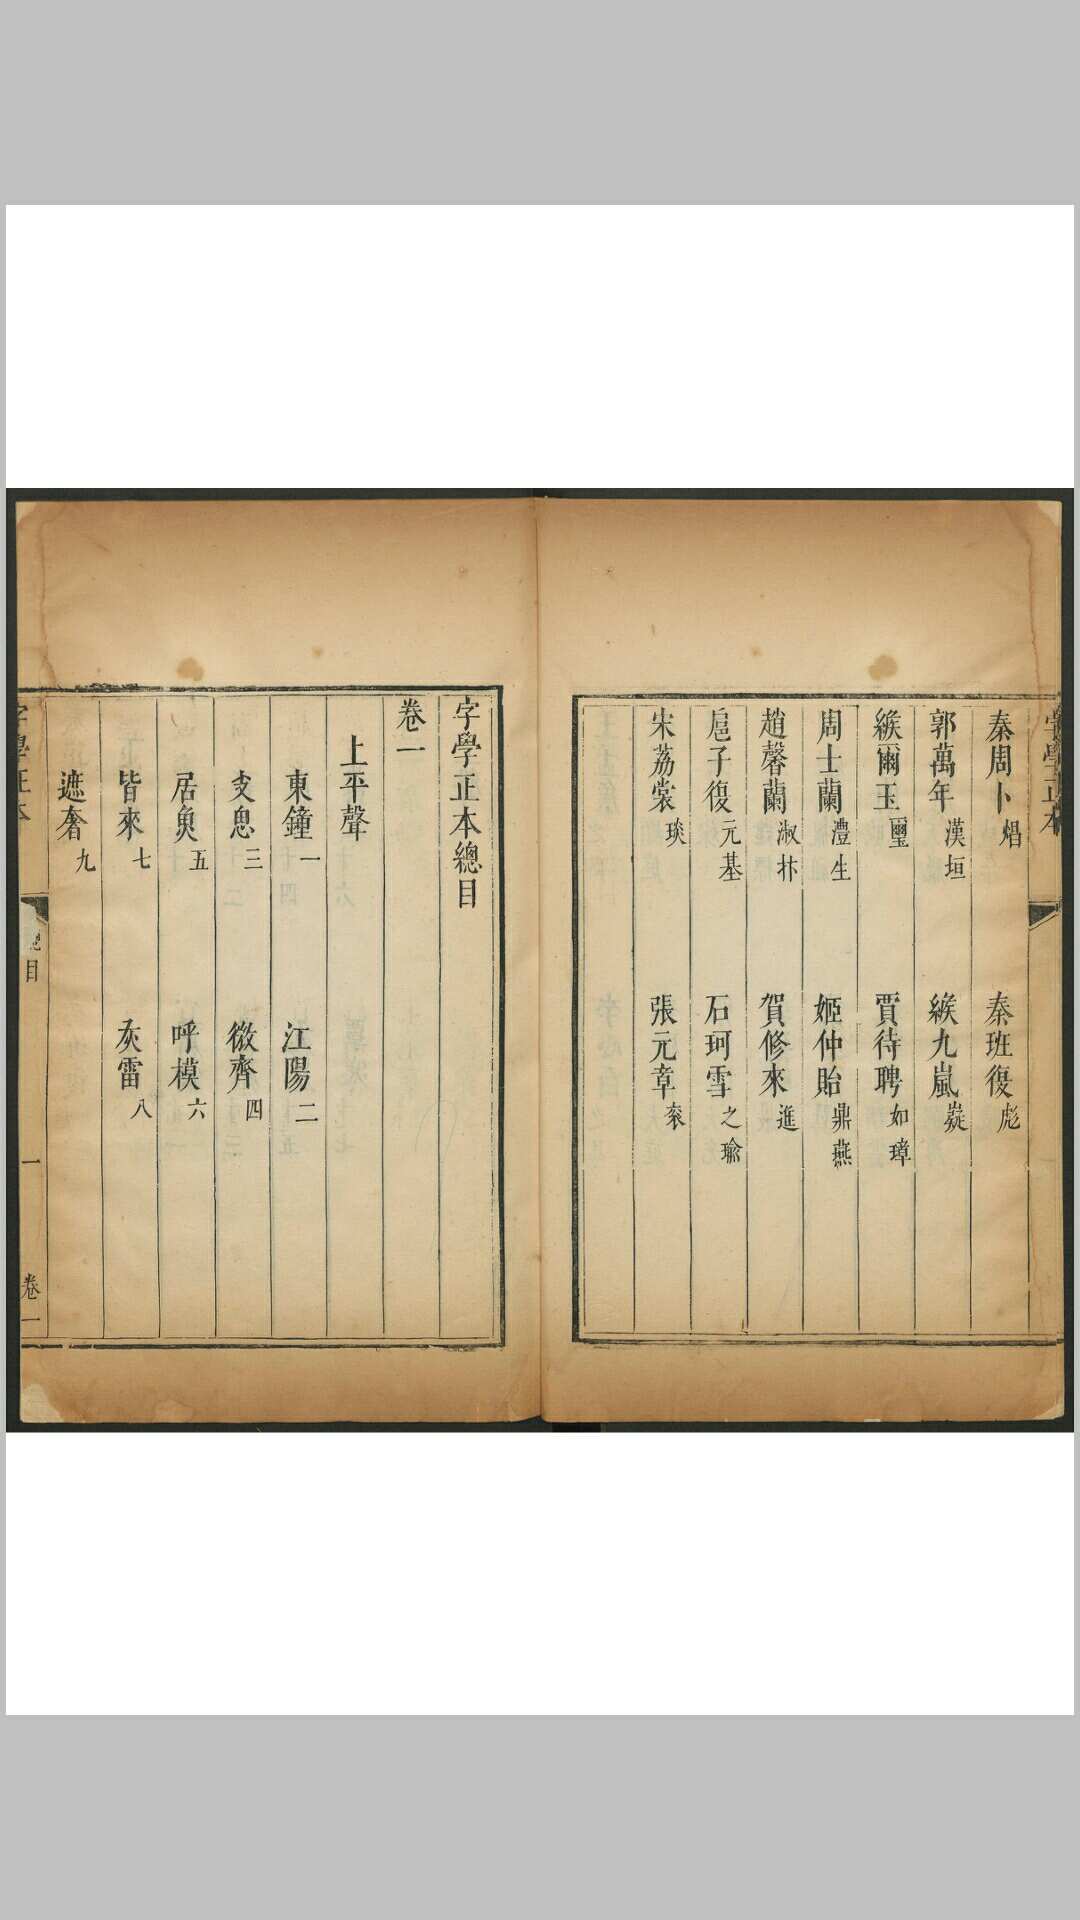 秦周卜 熀 秦班復 彪
郭萬年 漢垣 緱九嵐 嶷
緱爾玉 璽 賈待聘 如璋
周士蘭 澧生 姬仲貽 鼎燕
趙馨蘭 淑 賀修來 進
扈子復 元基 石珂雪 之瑜
宋荔裳 琰 張元章 衮
字學正本總目
卷一
上平聲
東鐘一 江陽二
支思三 微齊四
居魚五 呼模六
皆來七 灰雷八
遮奢九
字學正本 總目 一 卷一